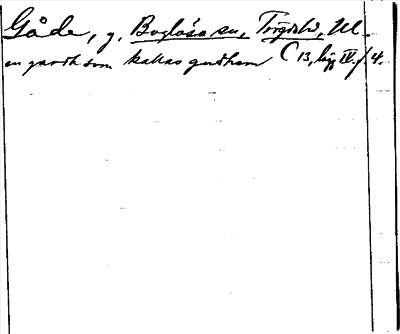 Gåde, g. Boglösa sn, Trögds hd, Upl.
en gardh som kallas gudhem C 13, lägg IV, f 4.